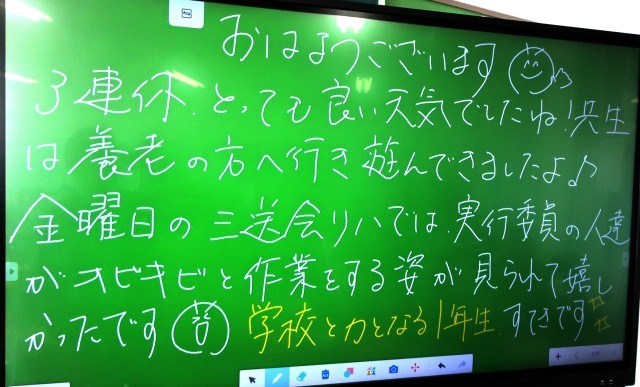 おはようございます
3連休、とっても良い天気でしたね!先生
は養老の方へ行き遊んできましたよ♪
金曜日の三送会リハでは、実行委員の人達
がキビキビと作業をする姿が見られて嬉し
かったです 学校と力となる1年生、すてきです